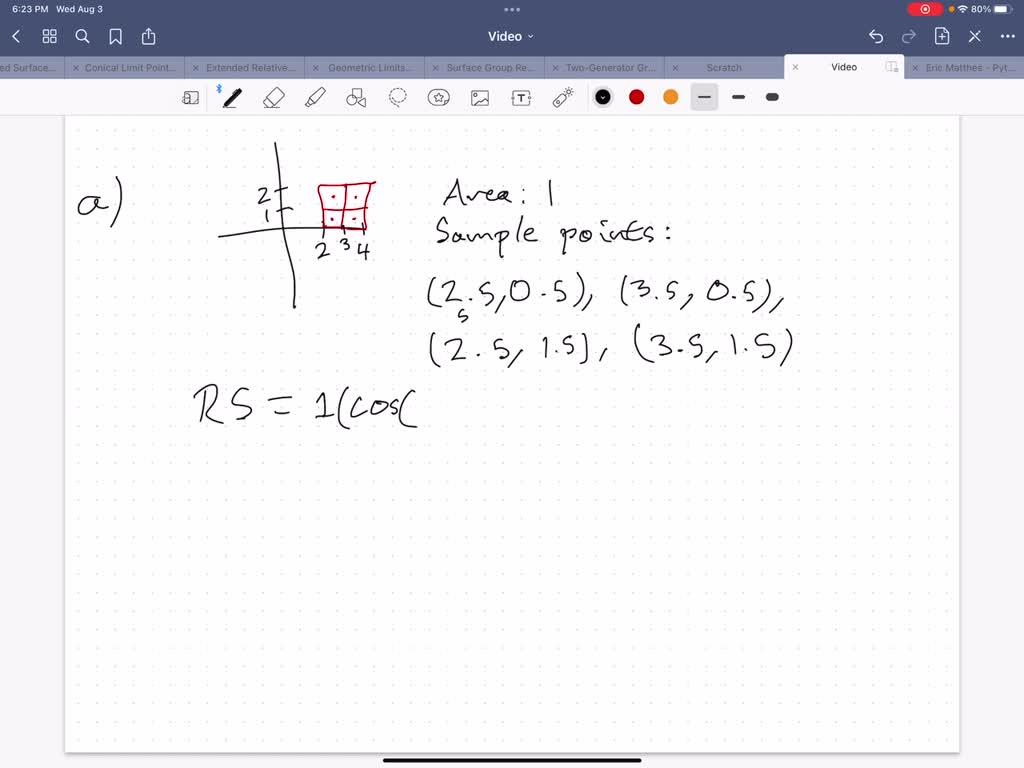 6:23 PM Wed Aug 3
80%
Video
ed Surface...
Conical Limit Point...
Extended Relative...
Geometric Limits...
Surface Group Re...
Two-Generator Gr...
Scratch
Video
Eric Matthes - Pyt...
a)
2
1
2 3 4
Area: 1
Sample points:
(2.5, 0.5), (3.5, 0.5),
5
(2.5, 1.5), (3.5, 1.5)
RS = 1(cos(